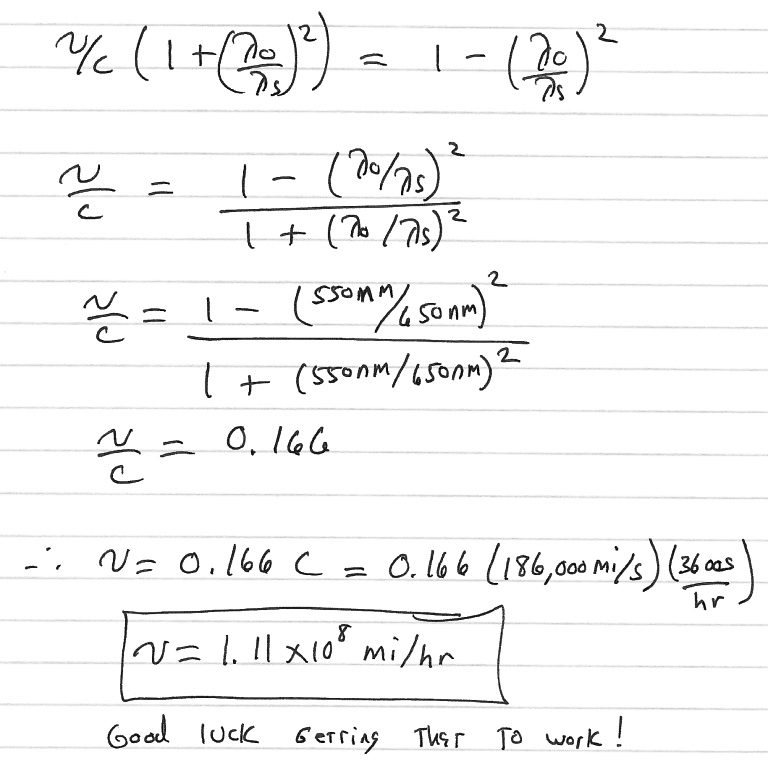 v/c (1 + (λo/λs)²) = 1 - (λo/λs)²
v/c = (1 - (λo/λs)²) / (1 + (λo/λs)²)
v/c = (1 - (550nm/650nm)²) / (1 + (550nm/650nm)²)
v/c = 0.166
∴ v = 0.166 c = 0.166 (186,000 mi/s) (3600s/hr)
v = 1.11 x10⁸ mi/hr
Good luck getting that to work!